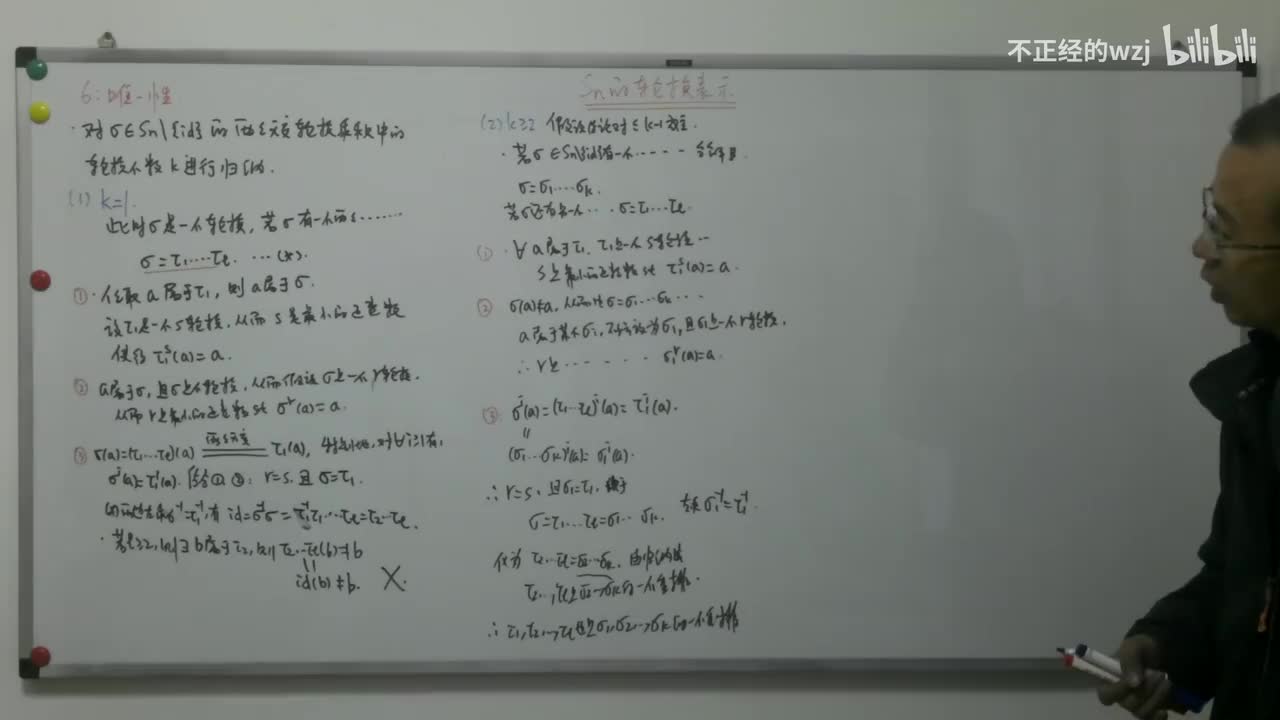 不正经的wzj bilibili
Sn的轮换表示
6:唯一性
·对σ∈Sn\{id}的两两无交轮换乘积中的
轮换个数k进行归纳.
(1) k=1.
此时σ是一个轮换, 若σ有一个两……
σ=τ1……τℓ. …(*).
①·任取a属于τ1, 则a属于σ.
设τ1是一个s轮换, 从而s是最小的正整数
使得τ1^s(a)=a.
② a属于σ, 且σ是个轮换, 从而假设σ是一个r轮换.
从而r是最小的正整数st σ^r(a)=a.
③ σ(a)=(τ1…τℓ)(a) 两两无交 τ1(a), 特别地, 对∀i≥1有,
σ^i(a)=τ1^i(a). 结合①②: r=s. 且σ=τ1.
(*)两边左乘σ^-1=τ1^-1, 有 id=σ^-1σ=τ1^-1τ1…τℓ=τ2…τℓ.
·若ℓ≥2, 则∃b属于τ2, 则τ2…τℓ(b)≠b
id(b)≠b. X.
(2) k≥2 假设结论对≤k-1成立.
·若σ∈Sn\{id}有一个……
σ=σ1……σk.
若σ还有另一个… σ=τ1…τℓ
①·∀a属于τ1, τ1是一个s轮换…
s是最小的正整数st τ1^s(a)=a.
② σ(a)≠a, 从而由σ=σ1…σk…
a属于某个σi, 不妨设为σ1, 且σ1是一个r轮换.
∴r是…… σ1^r(a)=a.
③ σ^i(a)=(τ1…τℓ)^i(a)=τ1^i(a).
=
(σ1…σk)^i(a)=σ1^i(a).
∴r=s, 且σ1=τ1,
σ=τ1…τℓ=σ1…σk. 左乘σ1^-1=τ1^-1.
化为 τ2…τℓ=σ2…σk, 由归纳
τ2,…,τℓ是σ2…σk的一个重排.
∴τ1,τ2,…,τℓ是σ1,σ2,…,σk的一个重排